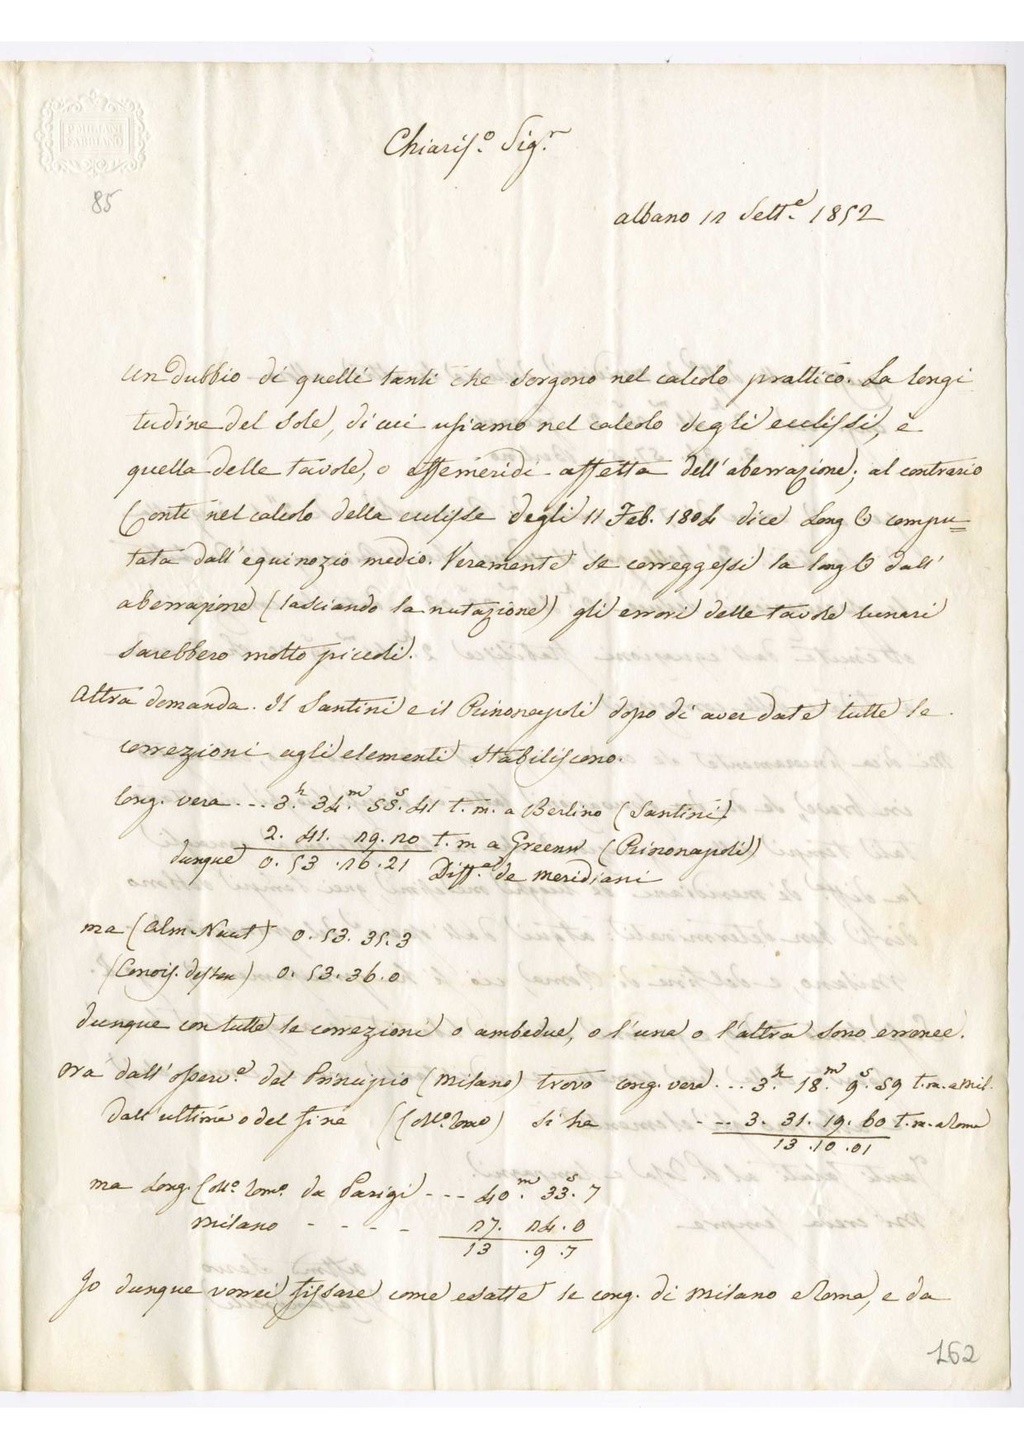 Chiaris.º Sig.r
85
albano 12 Sett.e 1852
un dubbio di quelli tanti che sorgono nel calcolo prattico. La longi
tudine del sole, di cui usiamo nel calcolo degli ecclissi, è
quella delle tavole, o effemeridi affetta dell'aberrazione; al contrario
Conti nel calcolo della ecclisse degli 11 Feb. 1804 dice Long ☉ compu=
tata dall'equinozio medio. Veramente se correggessi la long ☉ dall'
aberrazione (lasciando la nutazione) gli errori delle tavole lunari
sarebbero molto piccoli.
Altra demanda. Il Santini e il dopo di aver date tutte le
correzioni agli elementi stabiliscono.
cong. vera ... 3.h 34.m 55.s 41 t. m. a Berlino (Santini)
2. 41. 29. 20 t. m a Greenw
dunque 0. 53. 26. 21 Diff.e de meridiani
ma (Alm. Naut) 0. 53. 35. 3
(Conois. des tem) 0. 53. 36. 0
dunque con tutte le correzioni o ambedue, o l'una o l'altra sono erronee.
Ora dall'osserv.e del Principio (Milano) trovo cong. vera ... 3.h 18.m 9.s 59 t. m. a Mil.
dall'ultima o del fine (Coll.º Romo) si ha - -- 3. 31. 19. 60 t. m. a Roma
13. 10. 01
ma Long. Coll.º Rom.º da Parigi --- 40.m 33.s 7
Milano - - - - 27. 24. 0
13 . 9 . 7
Io dunque vorrei fissare come esatte le cong. di Milano e Roma, e da
162